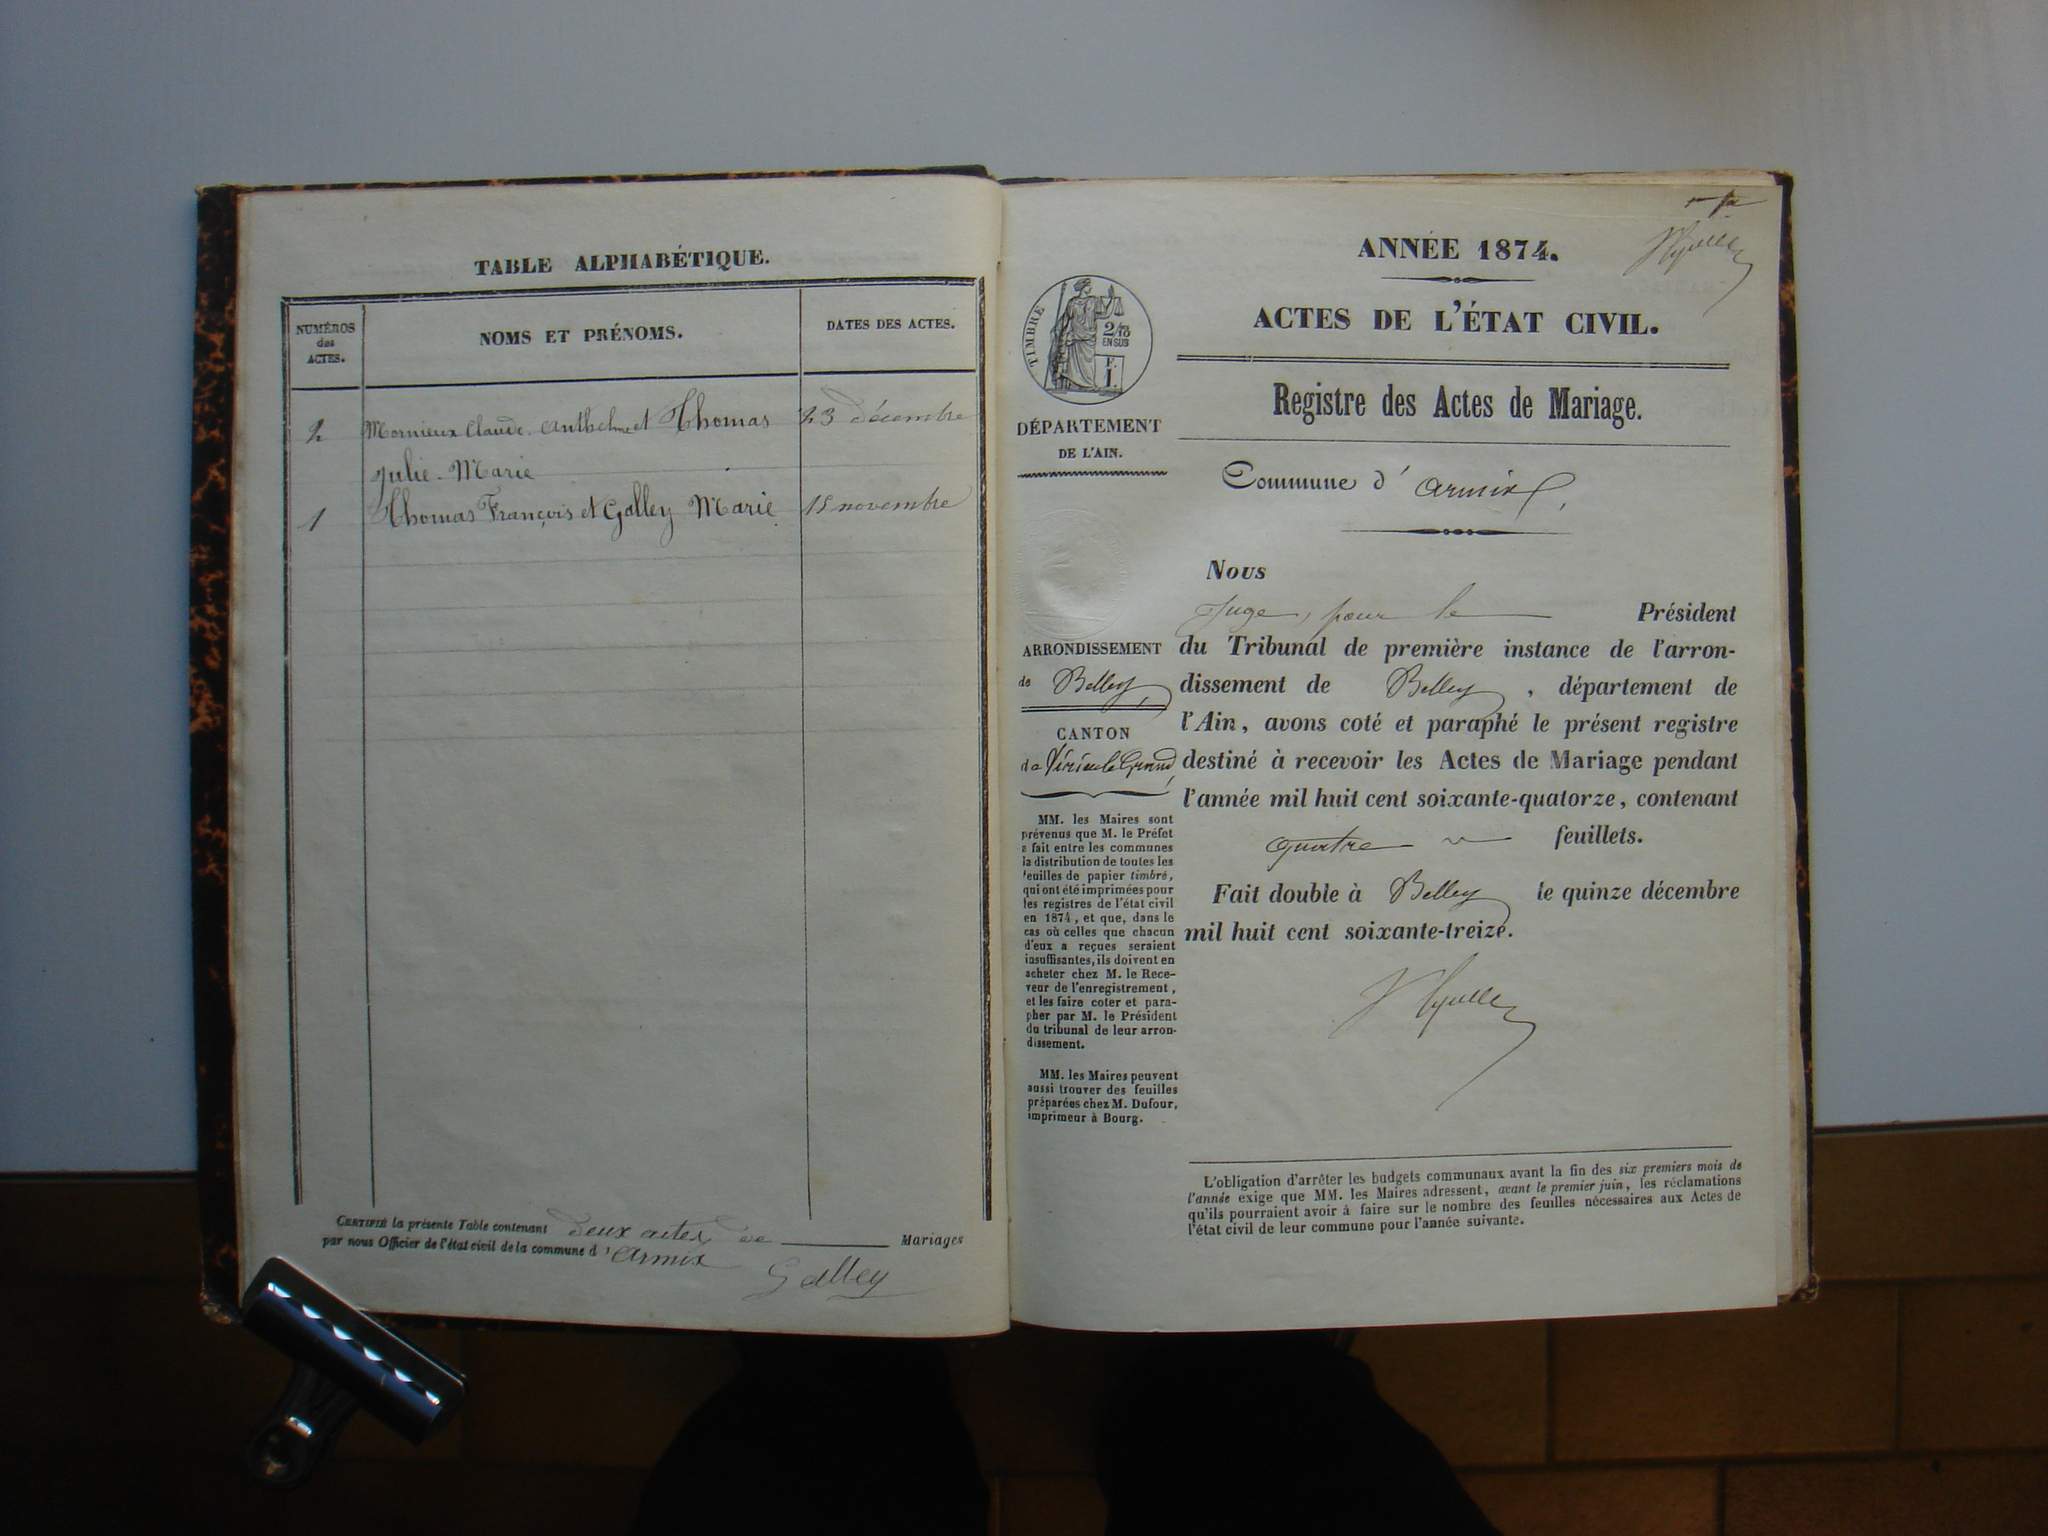 TABLE ALPHABÉTIQUE.
NUMÉROS
des
ACTES.
NOMS ET PRÉNOMS.
DATES DES ACTES.
2 Mornieux Claude Anthelme et Thomas 23 décembre
Julie-Marie
1 Thomas François et Galley Marie 15 novembre
CERTIFIÉ la présente Table contenant deux actes de Mariages
par nous Officier de l'état civil de la commune d'Armix
Galley
ANNÉE 1874.
ACTES DE L'ÉTAT CIVIL.
Registre des Actes de Mariage.
TIMBRE
2/10
EN SUS
DÉPARTEMENT
DE L'AIN.
Commune d'Armix,
Nous
Juge, pour le Président
du Tribunal de première instance de l'arron-
dissement de Belley, département de
l'Ain, avons coté et paraphé le présent registre
destiné à recevoir les Actes de Mariage pendant
l'année mil huit cent soixante-quatorze, contenant
quatre feuillets.
Fait double à Belley le quinze décembre
mil huit cent soixante-treize.
ARRONDISSEMENT
de Belley,
CANTON
de Virieu le Grand,
MM. les Maires sont
prévenus que M. le Préfet
a fait entre les communes
la distribution de toutes les
feuilles de papier timbré,
qui ont été imprimées pour
les registres de l'état civil
en 1874, et que, dans le
cas où celles que chacun
d'eux a reçues seraient
insuffisantes, ils doivent en
acheter chez M. le Rece-
veur de l'enregistrement,
et les faire coter et para-
pher par M. le Président
du tribunal de leur arron-
dissement.
MM. les Maires peuvent
aussi trouver des feuilles
préparées chez M. Dufour,
imprimeur à Bourg.
L'obligation d'arrêter les budgets communaux avant la fin des six premiers mois de
l'année exige que MM. les Maires adressent, avant le premier juin, les réclamations
qu'ils pourraient avoir à faire sur le nombre des feuilles nécessaires aux Actes de
l'état civil de leur commune pour l'année suivante.